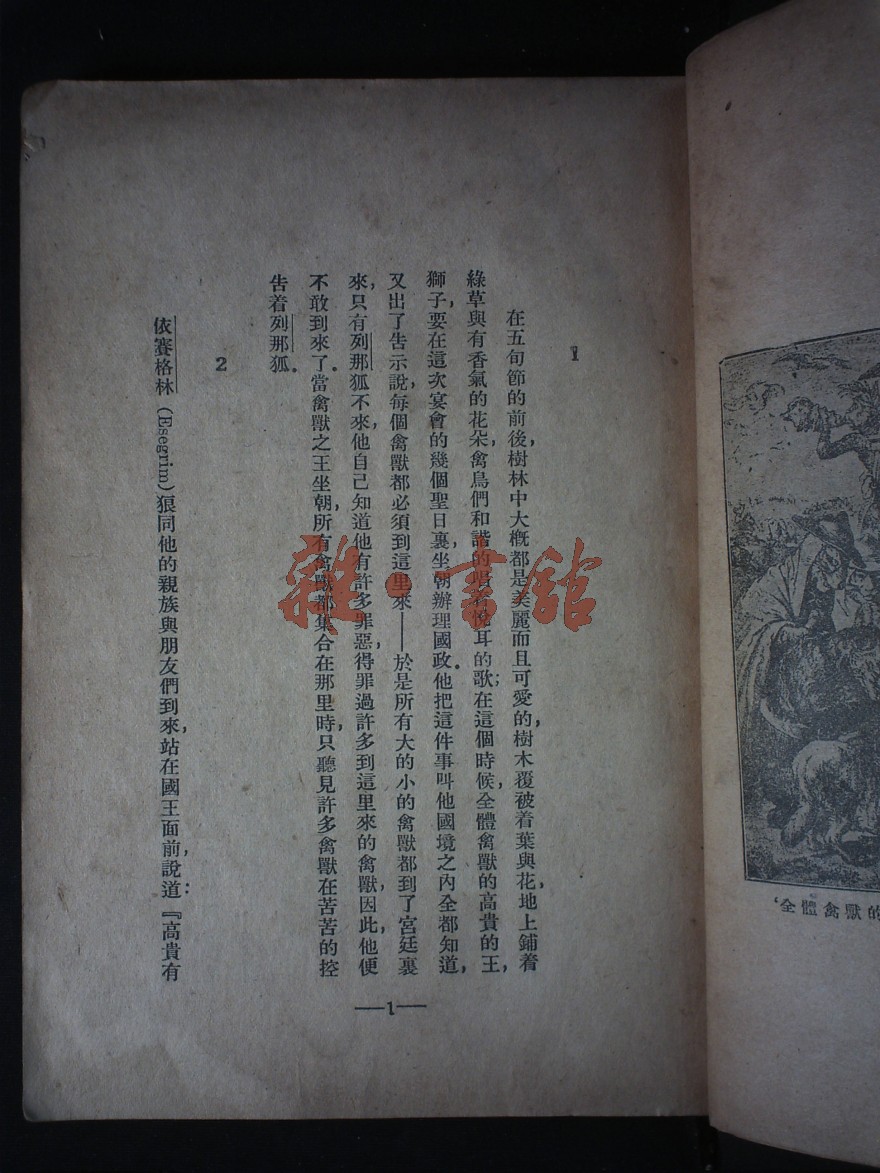 1
在五旬節的前後，樹林中大概都是美麗而且可愛的，樹木覆被着葉與花，地上鋪着
綠草與有香氣的花朵，禽鳥們和諧的唱着悅耳的歌；在這個時候，全體禽獸的高貴的王，
獅子，要在這次宴會的幾個聖日裏，坐朝辦理國政。他把這件事叫他國境之內全都知道，
又出了告示說，每個禽獸都必須到這里來——於是所有大的小的禽獸都到了宮廷裏
來，只有列那狐不來，他自己知道他有許多罪惡，得罪過許多到這里來的禽獸，因此，他便
不敢到來了。當禽獸之王坐朝，所有禽獸都集合在那里時，只聽見許多禽獸在苦苦的控
告着列那狐。
2
依賽格林（Esegrim）狼同他的親族與朋友們到來，站在國王面前，說道：『高貴有
—1—
‘全體禽獸的
雜·書館